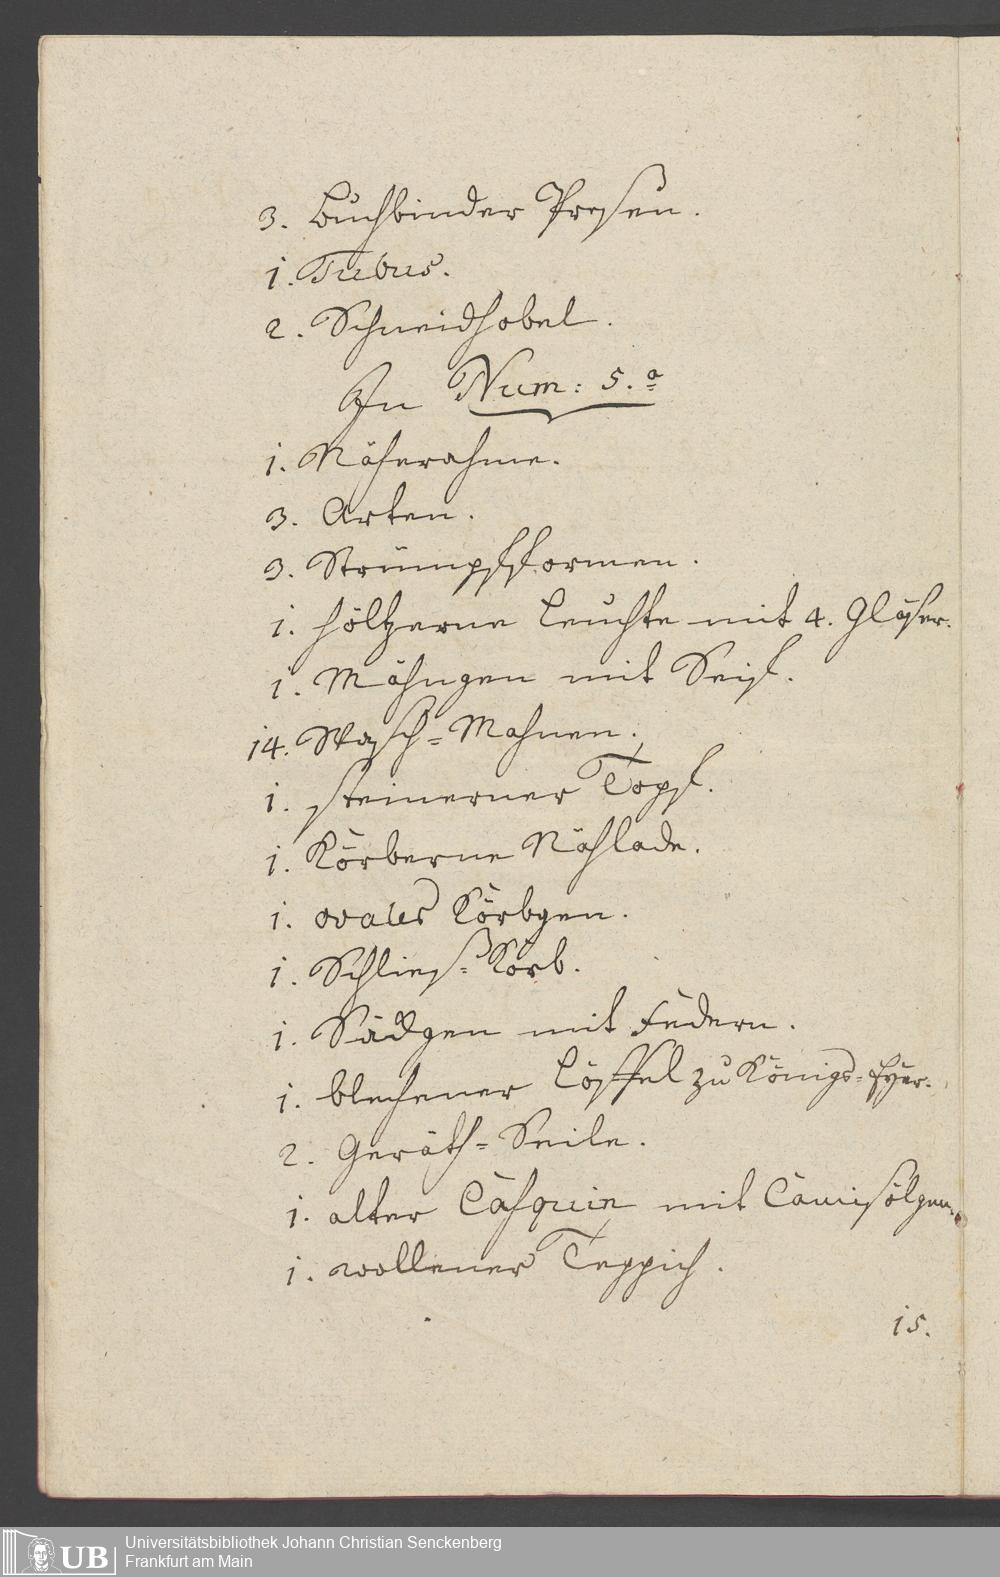 3. Buchbinder Presen.
1. Tubus.
2. Schneidhobel.
In Num: 5.a
1. Näherahme.
3. Arten.
3. Strümpfformen.
1. höltzerne Leuchte mit 4. Gläser.
1. Mähngen mit Seif.
14. Wasch-Mahnen.
1. steinerner Topf.
1. Körberne Nählade.
1. ovales Körbgen.
1. Schlies-Korb.
1. Säckgen mit Federn.
1. blechener Löffel zu Königs-Eyer.
2. Geräth-Seile.
1. alter Casquin mit Camisölgen.
1. wollener Teppich.
15.
Universitätsbibliothek Johann Christian Senckenberg
Frankfurt am Main
UB